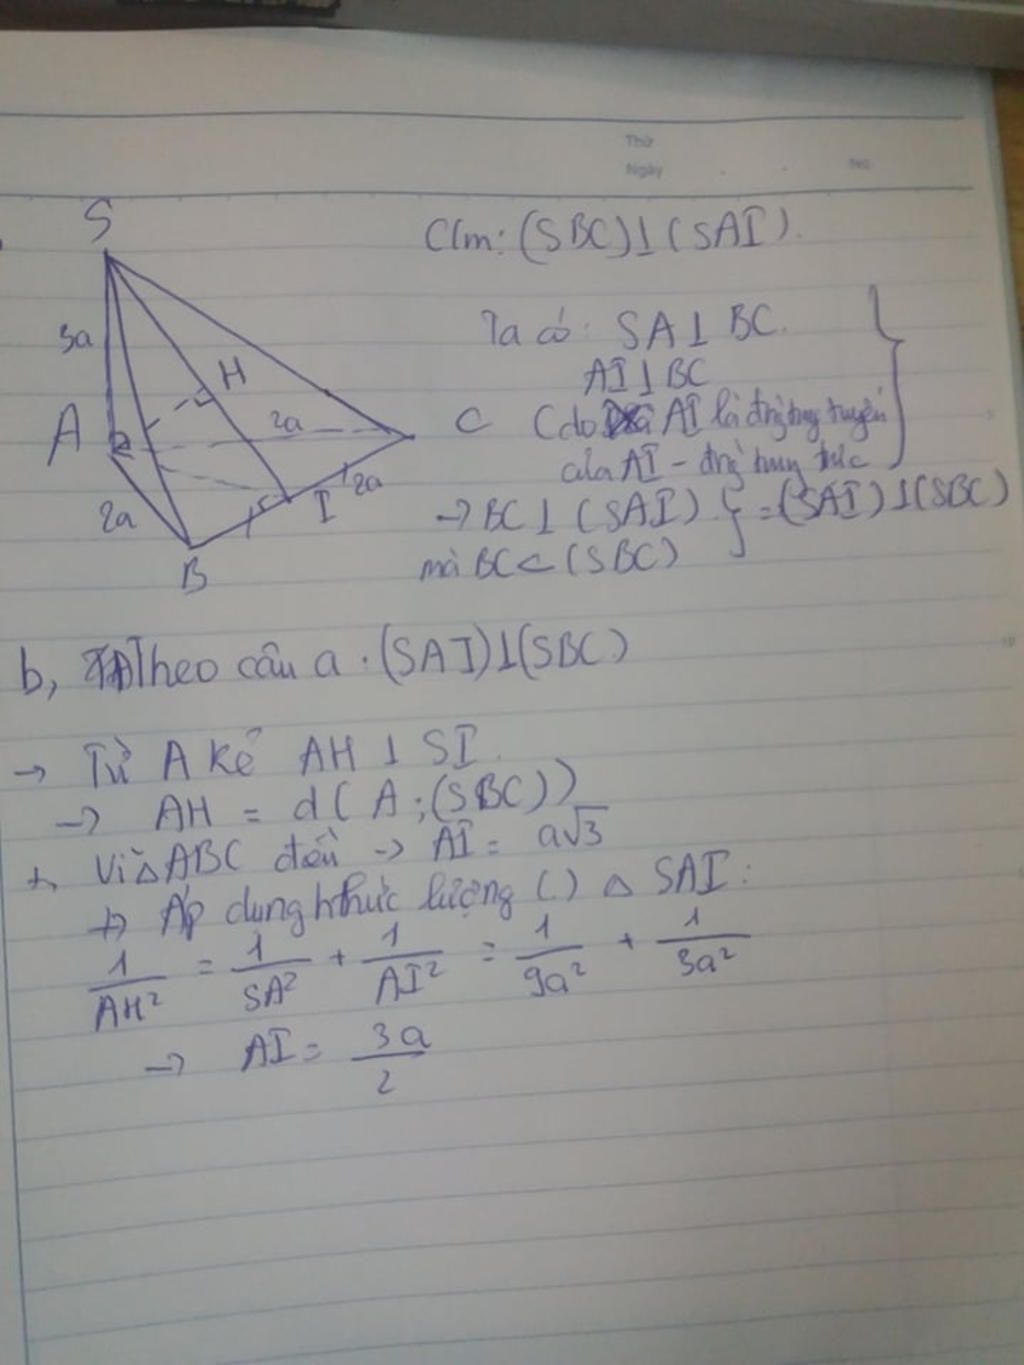 Thứ
Ngày
No.
S
3a
H
A
2a
C
2a
2a
I
B
C/m: (SBC)⊥(SAI).
Ta có: SA⊥BC.
AI⊥BC
(do AI là đg trung tuyến
của AI - đg trung trực
→ BC⊥(SAI). } =(SAI)⊥(SBC)
mà BC⊂(SBC)
b, Theo câu a. (SAI)⊥(SBC)
→ Từ A kẻ AH⊥SI.
→ AH = d(A;(SBC))
+, Vì △ABC đều → AI = a√3
+) Áp dụng hthức lượng (.) △ SAI:
1/AH² = 1/SA² + 1/AI² = 1/9a² + 1/3a²
→ AI = 3a/2